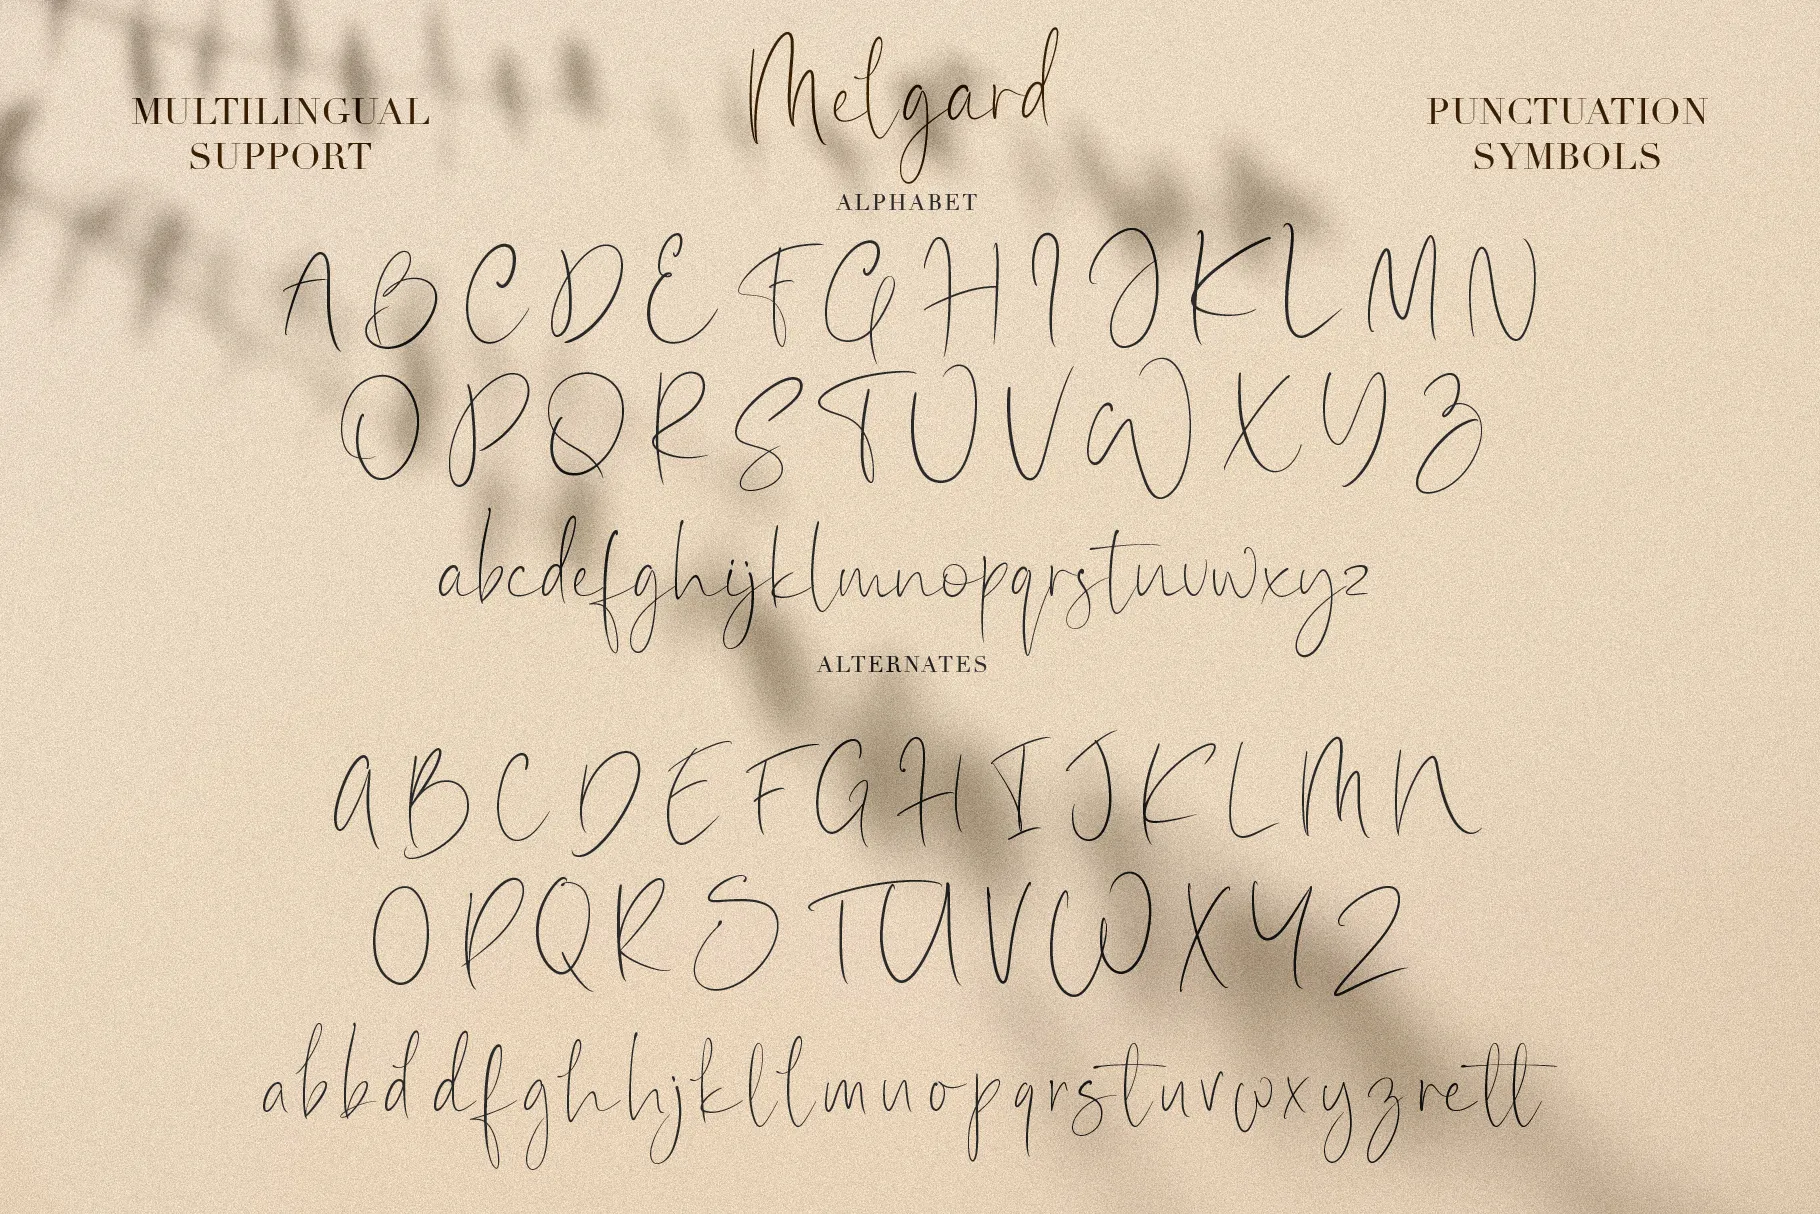 Melgard
MULTILINGUAL
SUPPORT
PUNCTUATION
SYMBOLS
ALPHABET
A B C D E F G H I J K L M N
O P Q R S T U V W X Y Z
abcdefghijklmnopqrstuvwxyz
ALTERNATES
A B C D E F G H I J K L M N
O P Q R S T U V W X Y Z
abbddfghhjkllmnopqrstuvwxyzrett